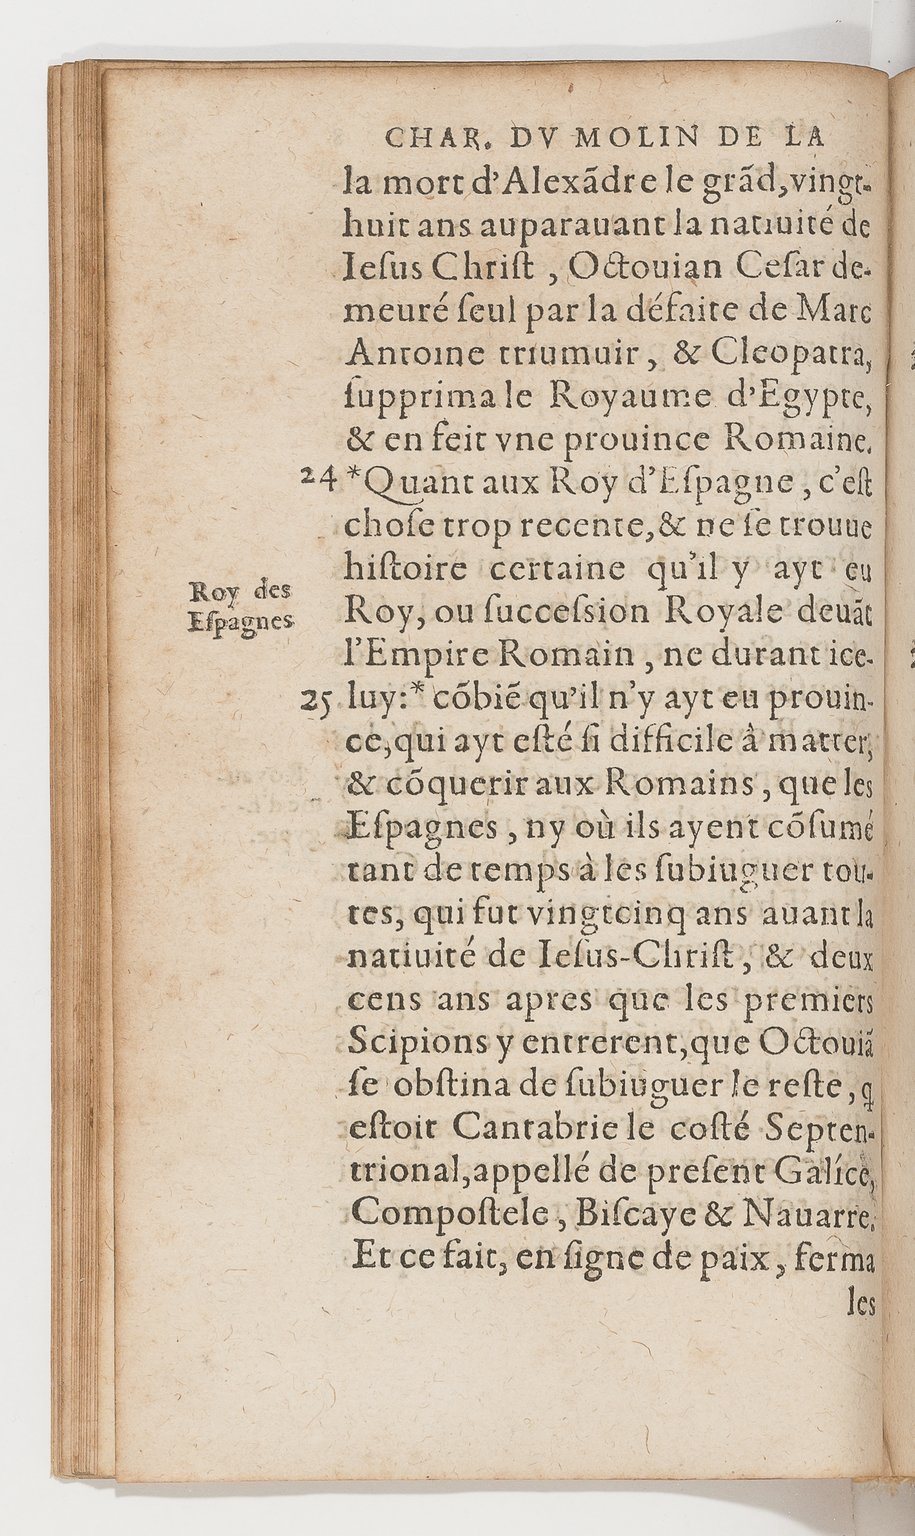 CHAR. DV MOLIN DE LA
la mort d'Alexãdre le grãd, vingt-
huit ans auparauant la natiuité de
Ieſus Chriſt, Octouian Ceſar de-
meuré ſeul par la défaite de Marc
Antoine triumuir, & Cleopatra,
ſupprima le Royaume d'Egypte,
& en feit vne prouince Romaine.
24 *Quant aux Roy d'Eſpagne, c'eſt
choſe trop recente, & ne ſe trouue
hiſtoire certaine qu'il y ayt eu
Roy des
Eſpagnes
Roy, ou ſucceſsion Royale deuãt
l'Empire Romain, ne durant ice-
25 luy:* cõbiẽ qu'il n'y ayt eu prouin-
ce, qui ayt eſté ſi difficile à matter,
& cõquerir aux Romains, que les
Eſpagnes, ny où ils ayent cõſumé
tant de temps à les ſubiuguer tou-
tes, qui fut vingtcinq ans auant la
natiuité de Ieſus-Chriſt, & deux
cens ans apres que les premiers
Scipions y entrerent, que Octouiã
ſe obſtina de ſubiuguer le reſte, q̃
eſtoit Cantabrie le coſté Septen-
trional, appellé de preſent Galíce,
Compoſtele, Biſcaye & Nauarre.
Et ce fait, en ſigne de paix, ferma
les